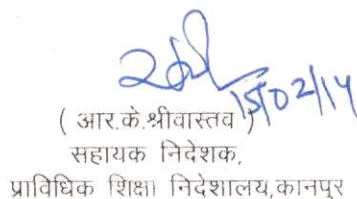 15/02/14
( आर.के.श्रीवास्तव )
सहायक निदेशक,
प्राविधिक शिक्षा निदेशालय,कानपुर